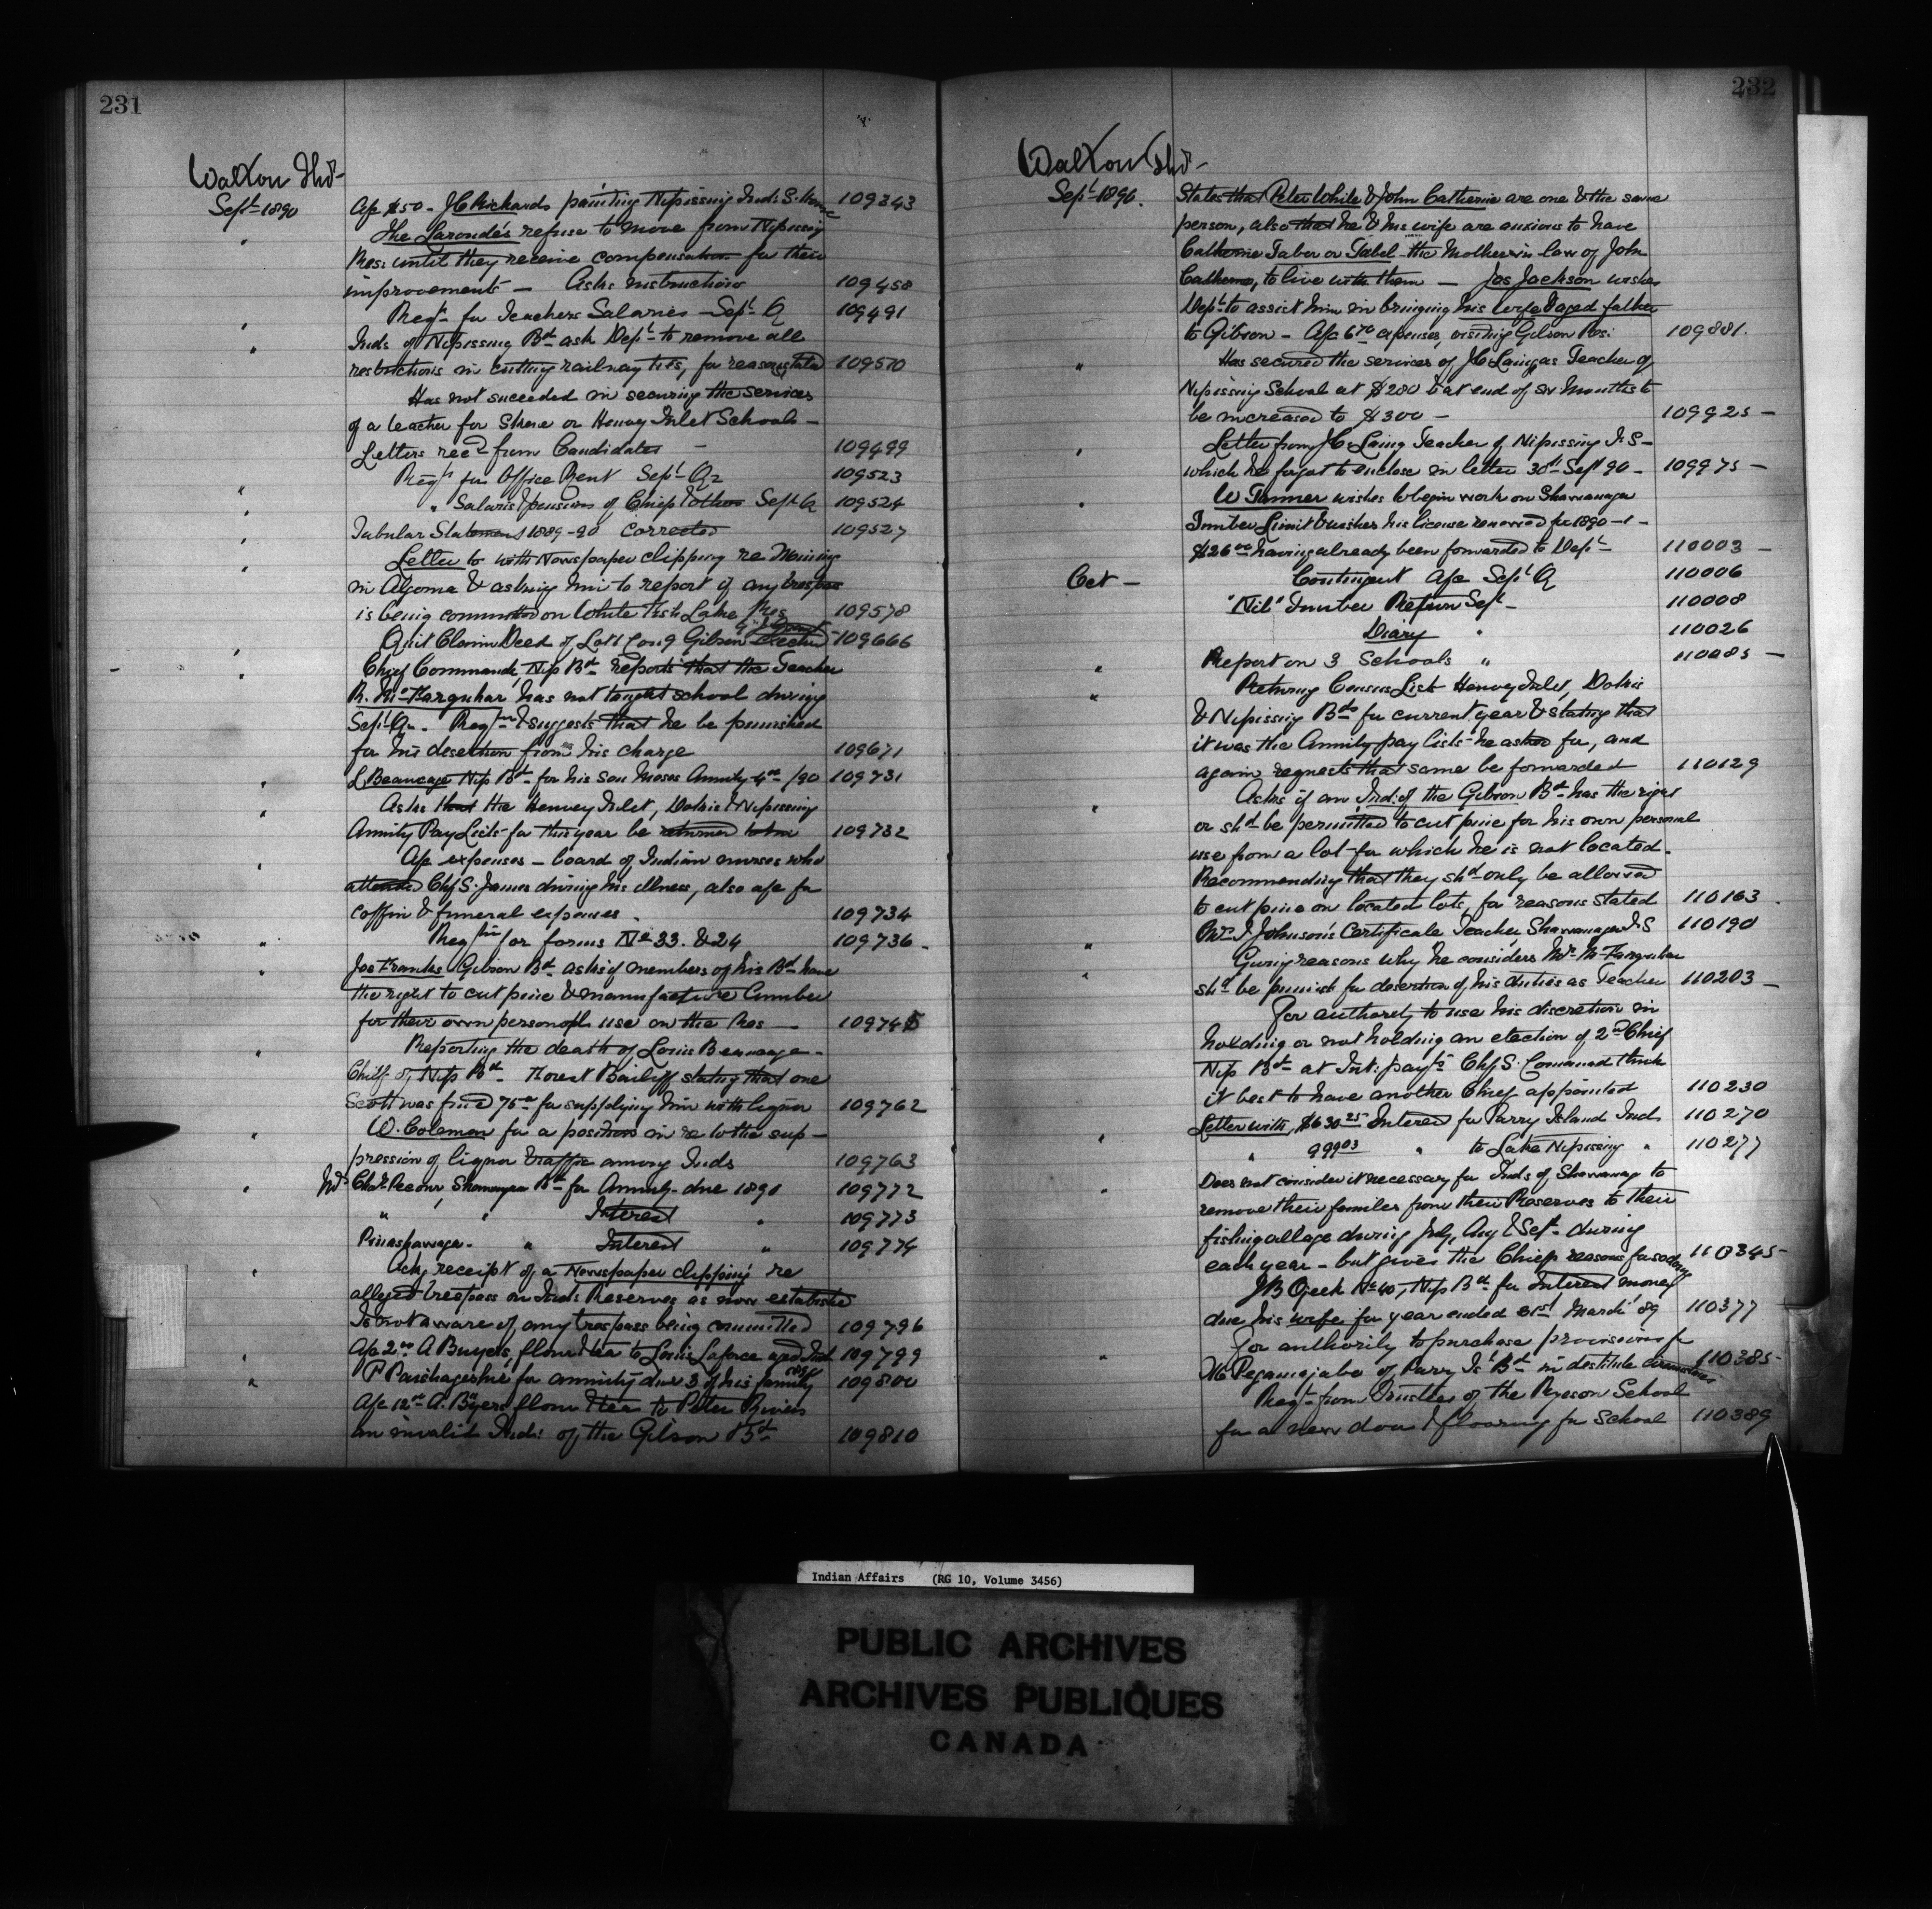 231
Walton Thos
Sept 1890
A/c $50 - J C Richards painting Nipissing Ind. S. House 109343
" The Laronde's refuse to move from Nipissing
Res: until they receive compensation for their
improvements — Asks instructions 109458
" Reqn for Teachers Salaries - Sept Q 109491
" Inds of Nipissing Bd ask Dept to remove all
restrictions in cutting railway ties, for reasons stated 109510
Has not succeeded in securing the services
of a teacher for Skene or Henvey Inlet Schools -
Letters recd from Candidates - 109499
" Reqn for Office Rent Sept Qr 109523
" " Salaries & pensions of Chiefs & others Sept Q 109524
" Tabular Statement 1889-90 corrected 109527
" Letter to with Newspaper clipping re Mining
in Algoma & asking him to report if any trespass
is being committed on White Fish Lake Res 109578
" Quit Claim Deed of Lot 1 Con 9 Gibson 109666
" Chief Commanda, Nip Bd reports that the Teacher
R. McFarquhar has not taught school during
Sept Qr. Reqn & suggests that he be punished
for his desertion from his charge 109671
" L Beaucage Nip Bd for his son Moses Annuity 4.00 /90 109731
" Asks that the Henvey Inlet, Dokis & Nipissing
Annuity Pay Lists for this year be returned to him 109732
" A/c expenses - board of Indian nurses who
attended Chf S. James during his illness, also a/c for
coffin & funeral expenses. 109734
" Reqn for forms No 33. & 24 109736 -
" Joe Franks Gibson Bd asks if members of his Bd have
the right to cut pine & manufacture lumber
for their own personal use on the Res — 109745
" Reporting the death of Louis Beaucage -
Chief of Nip Bd. Forest Bailiff stating that one
Scott was fined 75.00 for supplying him with liquor 109762
" W. Coleman for a position in re to the sup-
pression of liquor traffic among Inds 109763
" Chas Shawanaga Bd for Annuity due 1890 109772
" " Interest " 109773
" Interest " 109774
" Ackg receipt of a Newspaper clipping re
alleged trespass on Inds Reserves as now established
Is not aware of any trespass being committed 109796
" A/c 2.00 A Buyers, flour & tea to Louis Laforce aged Ind 109799
" P for annuity due 3 of his family 109800
A/c 12.00 A. Byers flour & tea to Peter
an invalid Ind: of the Gibson Bd 109810
232
Walton Thos
Sept 1890.
States that Peter White & John Catherine are one & the same
person, also that he & his wife are anxious to have
Catherine Tabor or Tabel the Mother in law of John
Catherine, to live with them — Jos Jackson wishes
Dept to assist him in bringing his wife & aged father
to Gibson - A/c 6.70 expenses, visiting Gibson Res: 109881.
" Has secured the services of J C Laing as Teacher of
Nipissing School at $280 & at end of six Months to
be increased to $300 - 109925 -
" Letter from J C Laing Teacher of Nipissing I. S -
which he forgot to enclose in letter 30th Sept 90 - 109975 -
" W Tanner wishes to begin work on Shawanaga
Timber Limit & wishes his license renewed for 1890-1 -
$26.00 having already been forwarded to Dept 110003 -
Oct - Contingent A/c Sept Q 110006
"Nil" Timber Return Sept - 110008
Diary " 110026
" Report on 3 Schools " 110085 -
" Returning Census Lists Henvey Inlet, Dokis
& Nipissing Bds for current year & stating that
it was the Annuity pay lists he asked for, and
again requests that same be forwarded 110129
" Asks if an Ind: of the Gibson Bd has the right
or shd be permitted to cut pine for his own personal
use from a lot for which he is not located.
Recommending that they shd only be allowed
to cut pine on located lots, for reasons stated 110163.
" Johnson's Certificate Teacher Shawanaga I. S 110190
" Giving reasons why he considers Mr McFarquhar
shd be punish for desertion of his duties as Teacher 110203 -
For authority to use his discretion in
holding or not holding an election of 2nd Chief
Nip Bd at Int: payts Chf S. Commanda think
it best to have another Chief appointed 110230
" Letter with, $630.25 Interest for Parry Island Ind 110270
" 999.03 " to Lake Nipissing " 110277
" Does not consider it necessary for Inds of Shawanaga to
remove their families from their Reserves to their
fishing village during July, Aug & Sept. during
each year - but gives the Chiefs reasons for so doing 110345 -
J B Ojeek No 40, Nip Bd for Interest money
due his wife for year ended 31st March '89 110377
" For authority to purchase provisions for
of Parry Isd Bd in destitute circumstances 110385 -
Reqt from Trustees of the Ryerson School
for a new door & flooring for School 110389
Indian Affairs (RG 10, Volume 3456)
PUBLIC ARCHIVES
ARCHIVES PUBLIQUES
CANADA